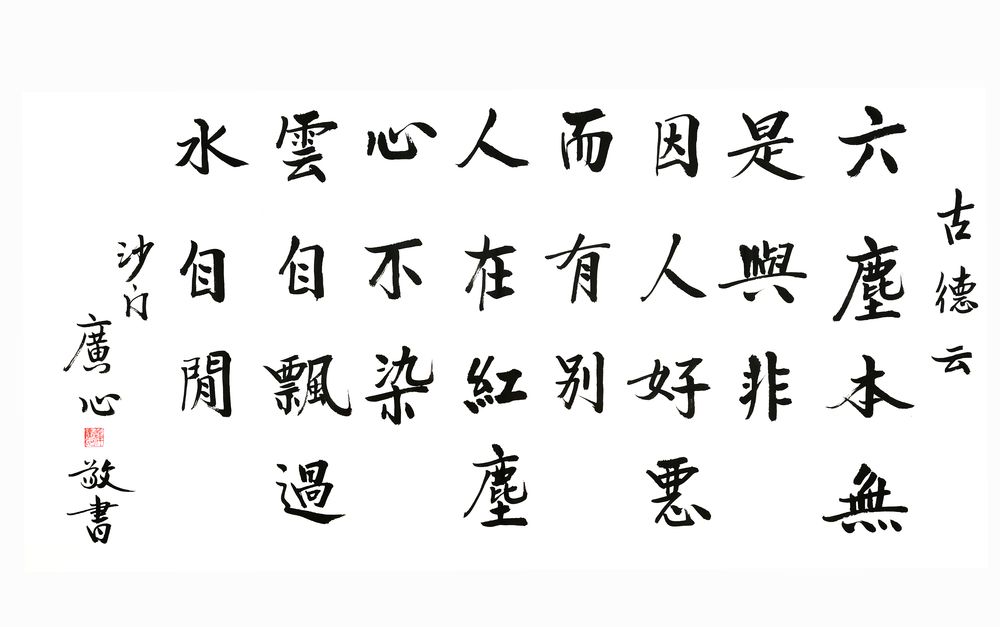 古德云
六塵本無
是與非
因人好惡
而有別
人在紅塵
心不染
雲自飄過
水自閒
沙門
廣心
敬書